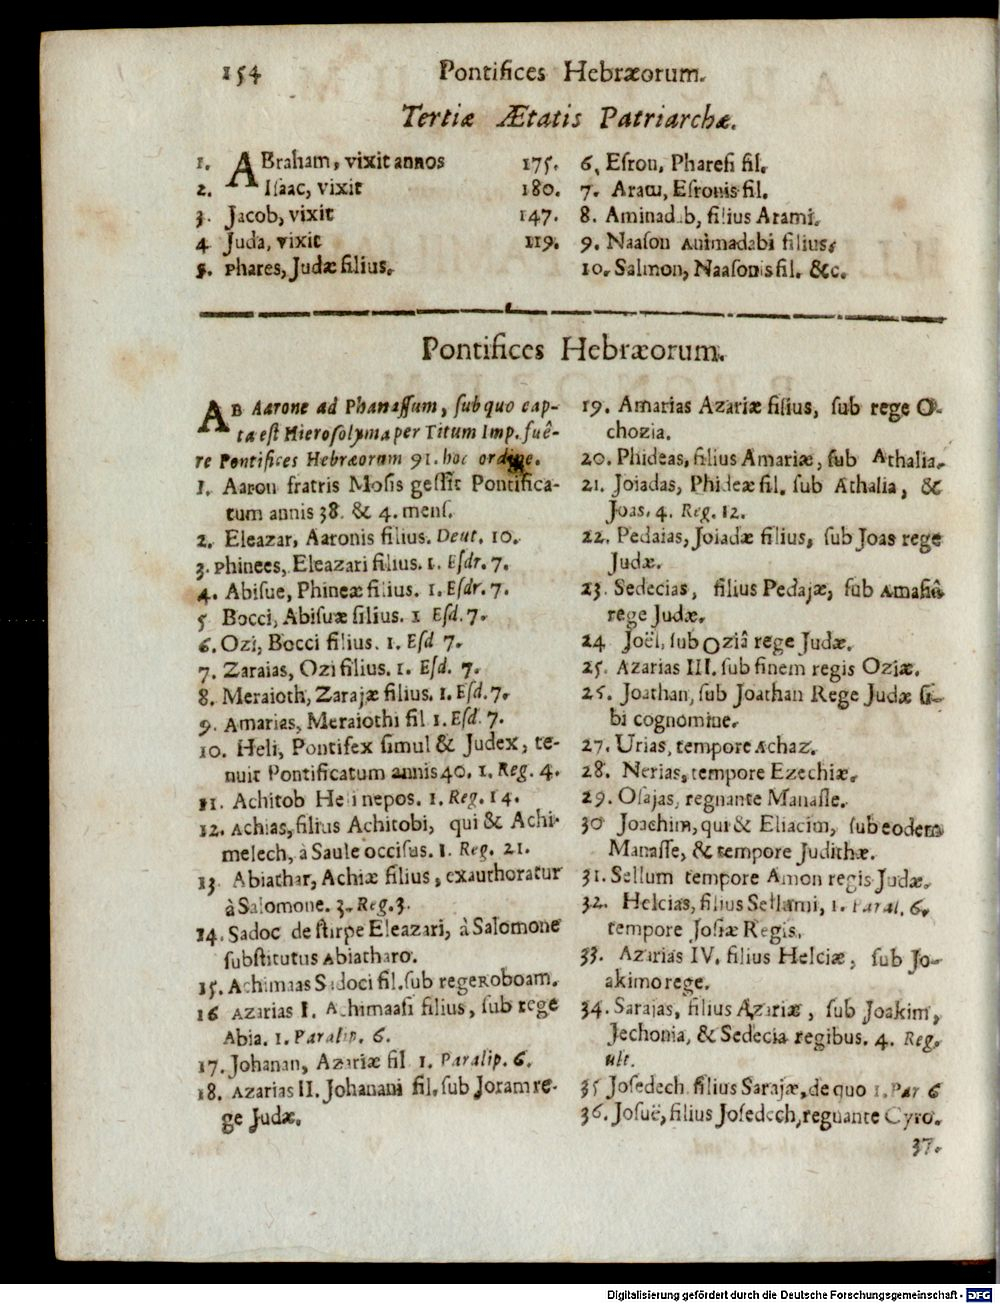 154 Pontifices Hebræorum.
Tertiæ Ætatis Patriarchæ.
1. ABraham, vixit annos 175.
2. Isaac, vixit 180.
3. Jacob, vixit 147.
4 Juda, vixit 119.
5. Phares, Judæ filius.
6. Esron, Pharesi fil.
7. Aram, Esronis fil.
8. Aminadab, filius Arami.
9. Naason Animadabi filius.
10. Salmon, Naasonis fil. &c.
Pontifices Hebræorum.
AB Aarone ad Phanassum, sub quo cap-
ta est Hierosolyma per Titum Imp. fuê-
re Pontifices Hebræorum 91. hoc ordine.
1. Aaron fratris Mosis gessit Pontifica-
tum annis 38. & 4. mens.
2. Eleazar, Aaronis filius. Deut. 10.
3. Phinees, Eleazari filius. 1. Esdr. 7.
4. Abisue, Phineæ filius. 1. Esdr. 7.
5 Bocci, Abisuæ filius. 1 Esd. 7.
6. Ozi, Bocci filius. 1. Esd 7.
7. Zaraias, Ozi filius. 1. Esd. 7.
8. Meraioth, Zarajæ filius. 1. Esd. 7.
9. Amarias, Meraiothi fil 1. Esd. 7.
10. Heli, Pontifex simul & Judex, te-
nuit Pontificatum annis 40. 1. Reg. 4.
11. Achitob Heli nepos. 1. Reg. 14.
12. Achias, filius Achitobi, qui & Achi-
melech, à Saule occisus. 1. Reg. 21.
13. Abiathar, Achiæ filius, exauthoratur
à Salomone. 3. Reg. 3.
14. Sadoc de stirpe Eleazari, à Salomone
substitutus Abiatharo.
15. Achimaas Sadoci fil. sub rege Roboam.
16 Azarias I. Achimaasi filius, sub rege
Abia. 1. Paralip. 6.
17. Johanan, Azariæ fil 1. Paralip. 6.
18. Azarias II. Johanani fil. sub Joram re-
ge Judæ.
19. Amarias Azariæ filius, sub rege O-
chozia.
20. Phideas, filius Amariæ, sub Athalia.
21. Joiadas, Phideæ fil. sub Athalia, &
Joas. 4. Reg. 12.
22. Pedaias, Joiadæ filius, sub Joas rege
Judæ.
23. Sedecias, filius Pedajæ, sub Amasiâ
rege Judæ.
24 Joël, sub Oziâ rege Judæ.
25. Azarias III. sub finem regis Oziæ.
25. Joathan, sub Joathan Rege Judæ si-
bi cognomine.
27. Urias, tempore Achaz.
28. Nerias, tempore Ezechiæ.
29. Osajas, regnante Manasse.
30 Joachim, qui & Eliacim, sub eodem
Manasse, & tempore Judithæ.
31. Sellum tempore Amon regis Judæ.
32. Helcias, filius Sellumi, 1. Paral. 6.
tempore Josiæ Regis.
33. Azarias IV. filius Helciæ, sub Jo-
akimo rege.
34. Sarajas, filius Azariæ, sub Joakim,
Jechonia, & Sedecia regibus. 4. Reg.
ult.
35 Josedech filius Sarajæ, de quo 1. Par 6
36. Josuë, filius Josedech, regnante Cyro.
37.
Digitalisierung gefördert durch die Deutsche Forschungsgemeinschaft - DFG